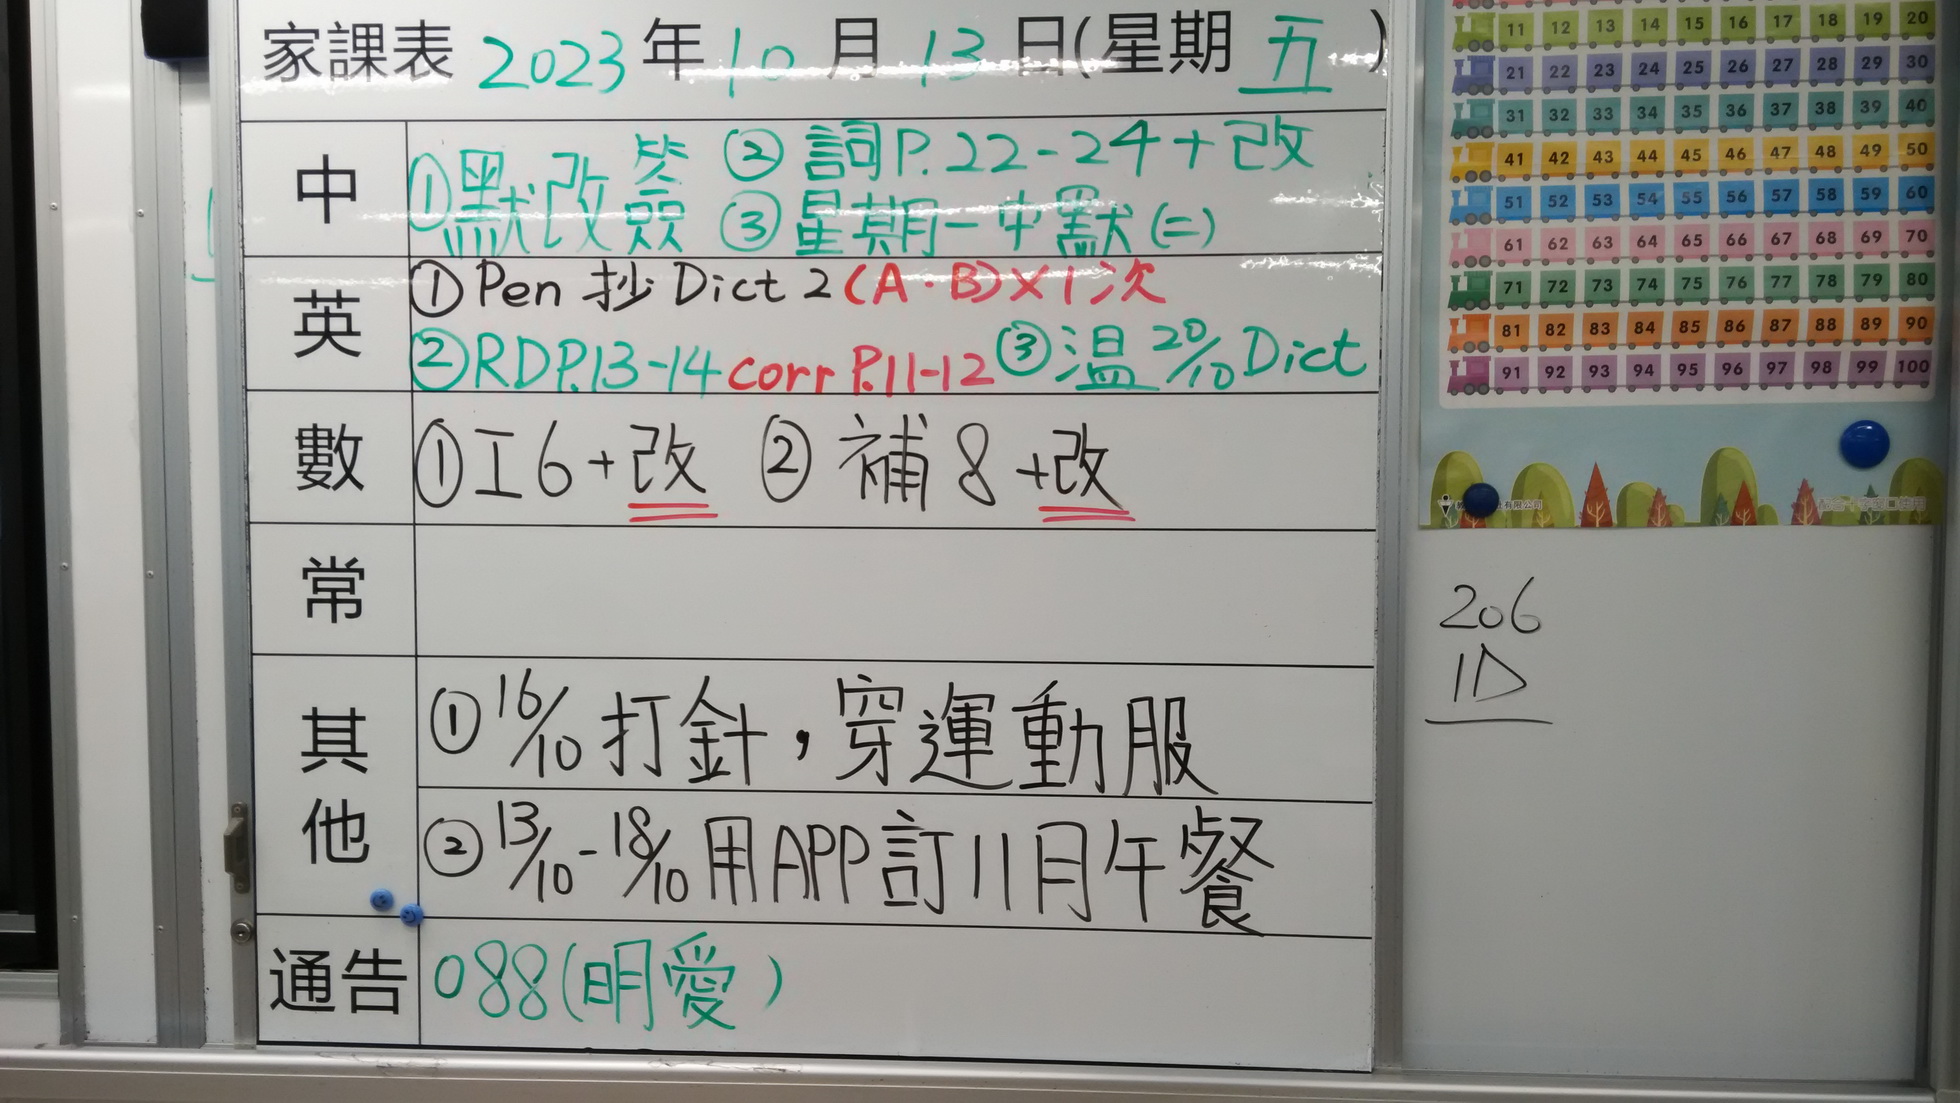 家課表 2023年10月13日(星期五)
中
①默改簽 ②詞P.22-24+改
③星期一中默(二)
英
①Pen 抄 Dict 2 (A.B)×1次
②RDP.13-14 corr P.11-12 ③温20/10 Dict
數
①工6+改 ②補8+改
常
其他
①16/10打針，穿運動服
②13/10-18/10用APP訂11月午餐
通告
088(明愛)
11 12 13 14 15 16 17 18 19 20
21 22 23 24 25 26 27 28 29 30
31 32 33 34 35 36 37 38 39 40
41 42 43 44 45 46 47 48 49 50
51 52 53 54 55 56 57 58 59 60
61 62 63 64 65 66 67 68 69 70
71 72 73 74 75 76 77 78 79 80
81 82 83 84 85 86 87 88 89 90
91 92 93 94 95 96 97 98 99 100
有限公司
206
1D